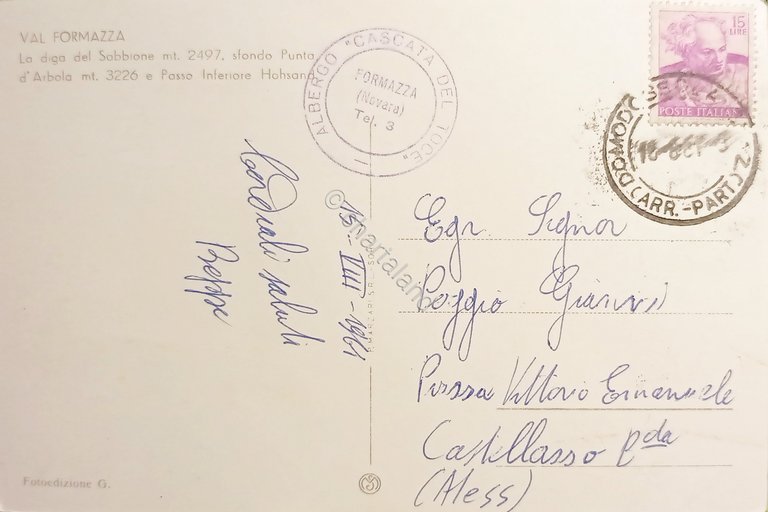 VAL FORMAZZA
La diga del Sabbione mt. 2497, sfondo Punta
d'Arbola mt. 3226 e Passo Inferiore Hohsand
ALBERGO "CASCATA DEL TOCE"
FORMAZZA
(Novara)
Tel. 3
15 LIRE
POSTE ITALIANE
(ARR.-PART.)
Cordiali saluti
Beppe
15-VIII-1961
© Martaland
Egr. Signor
Poggio Gianni
Piazza Vittorio Emanuele
Castellazzo Bda
(Aless)
Fotoedizione G.